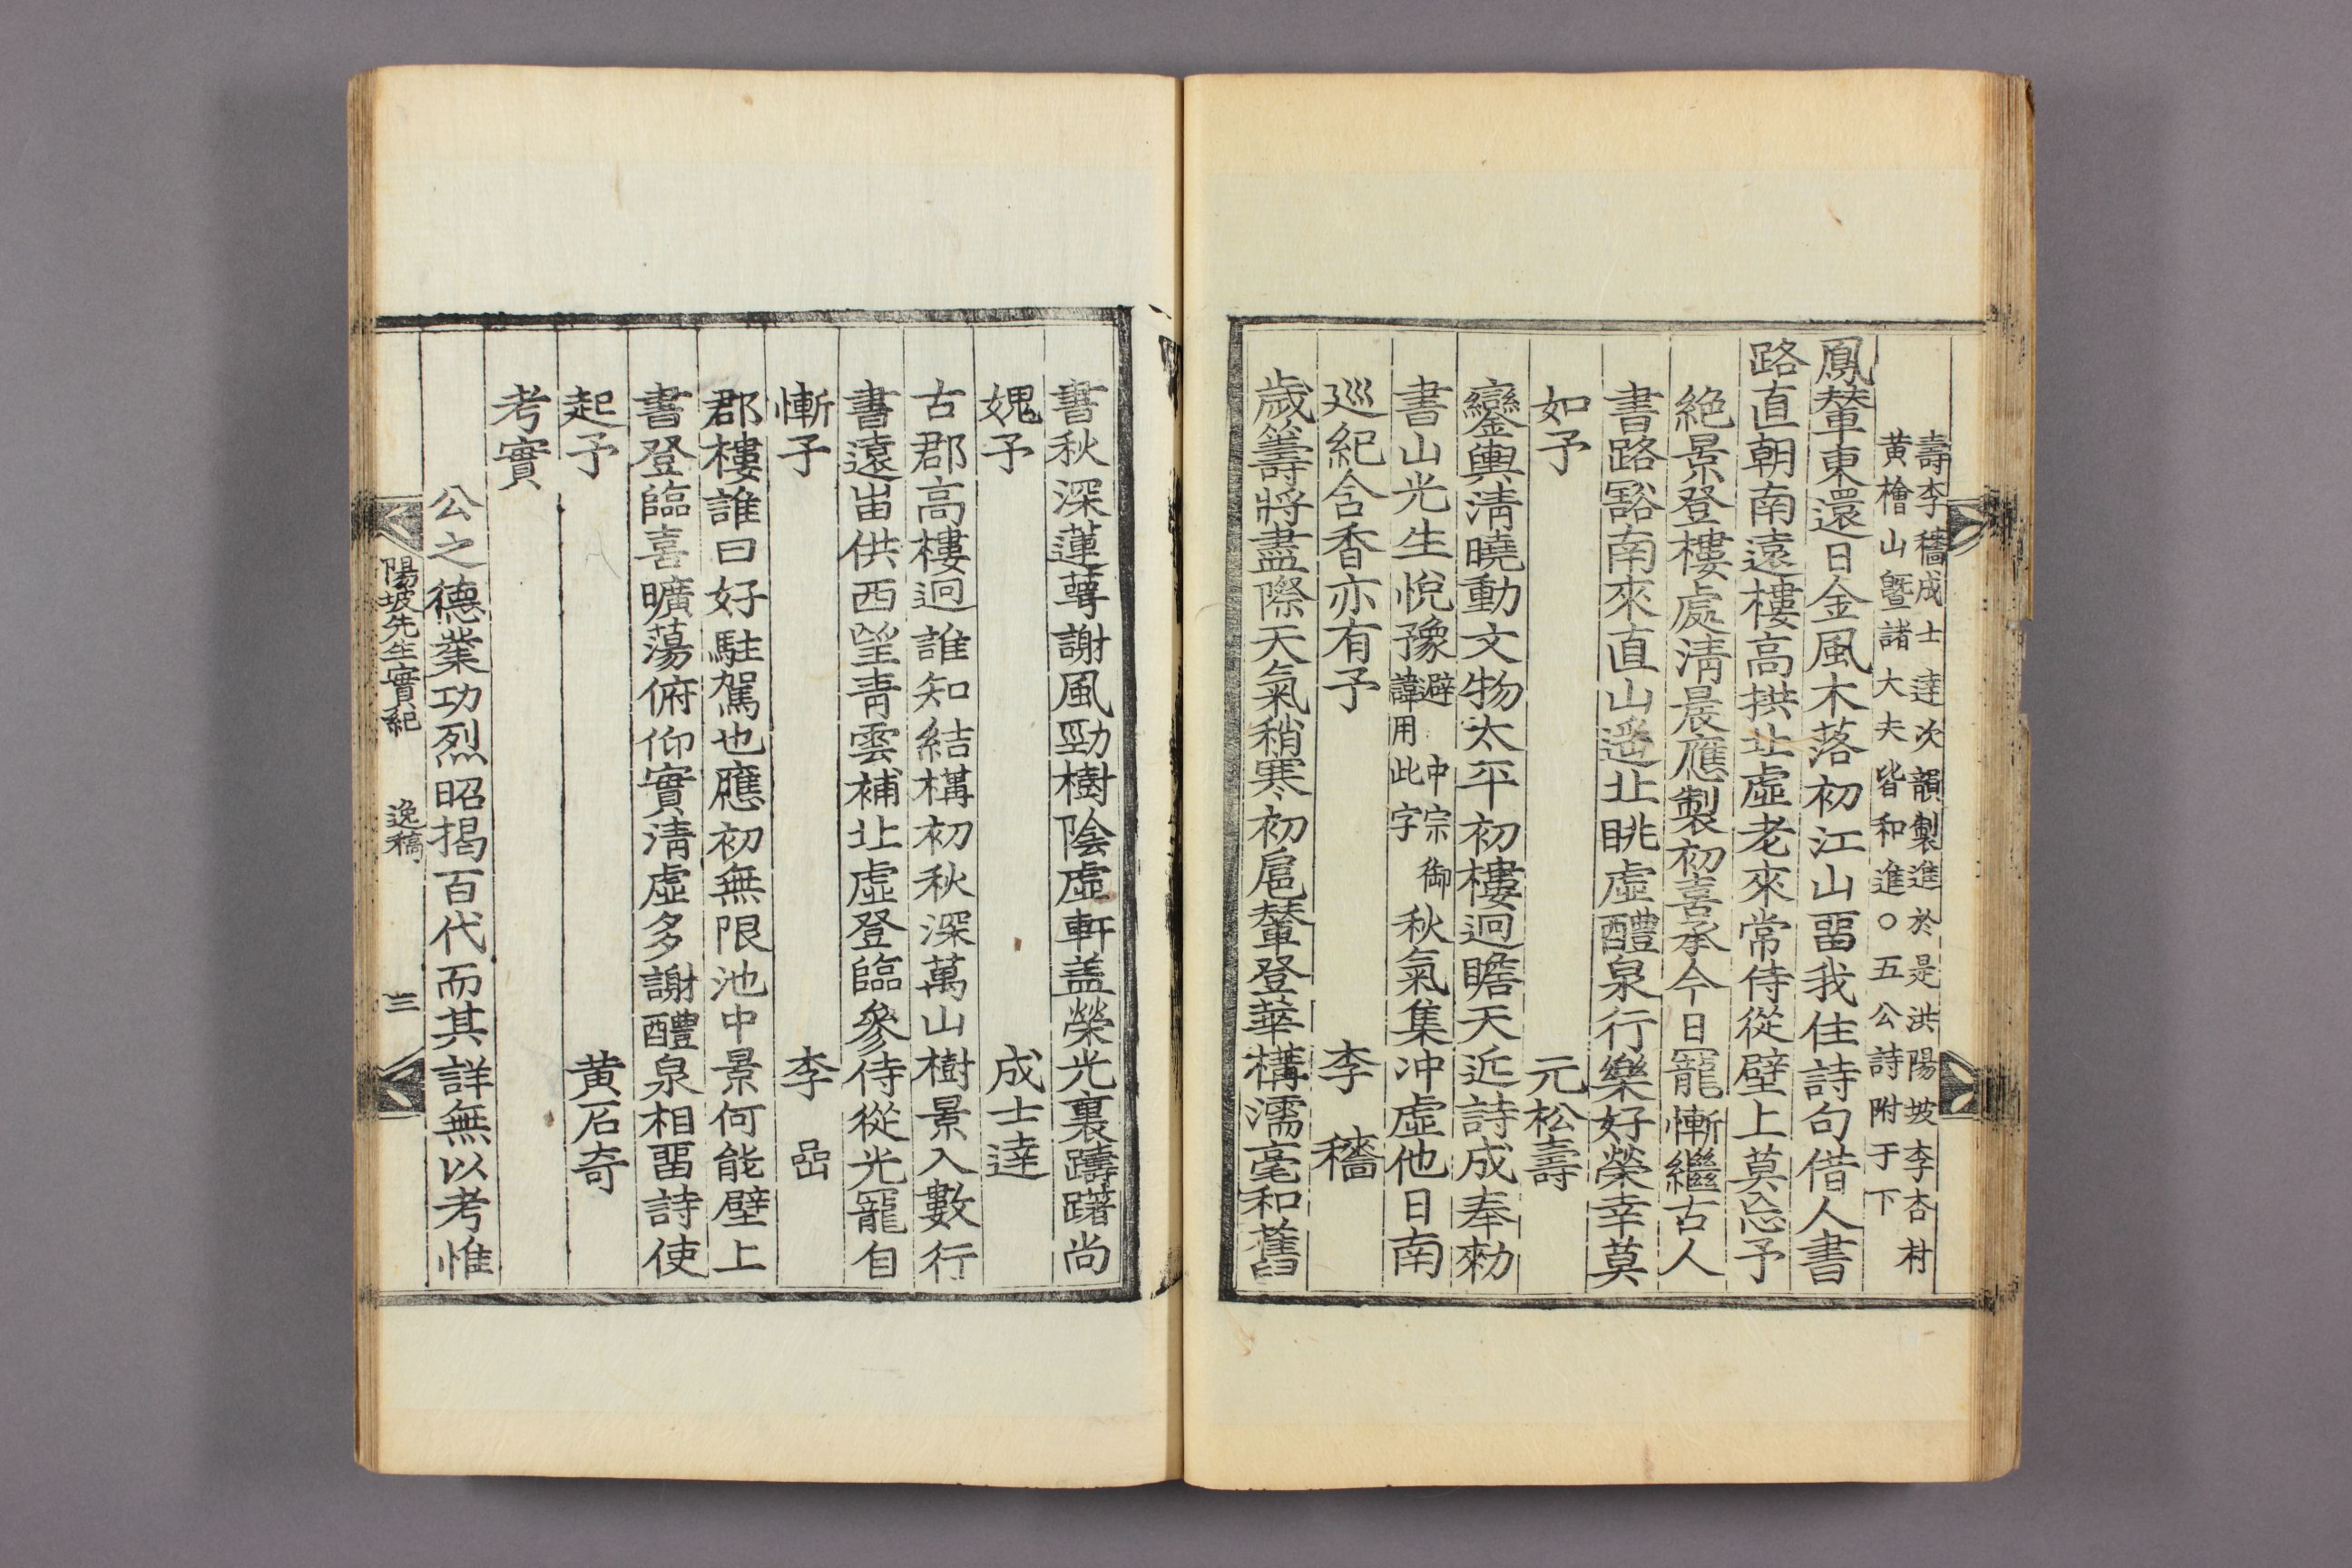 壽李穡成士達次韻製進於是洪陽坡李杏村
黄檜山曁諸大夫皆和進○五公詩附于下
鳳輦東還日金風木落初江山畱我住詩句借人書
路直朝南遠樓高拱北虛老來常侍從壁上莫忘予
絶景登樓處淸晨應製初喜承今日寵慚繼古人
書路豁南來直山遥北眺虛醴泉行樂好榮幸莫
如予
元松壽
鑾輿淸曉動文物太平初樓迥瞻天近詩成奉勑
書山光生悅豫避中宗御諱用此字秋氣集冲虛他日南
巡紀含香亦有予
李穡
歲籌將盡際天氣稍寒初扈輦登華構濡毫和舊
書秋深蓮萼謝風勁樹陰虛軒盖榮光裏躊躇尚
媿予
成士達
古郡高樓迥誰知結構初秋深萬山樹景入數行
書遠岫供西望靑雲補北虛登臨參侍從光寵自
慚予
李嵒
郡樓誰曰好駐駕也應初無限池中景何能壁上
書登臨喜曠蕩俯仰實淸虛多謝醴泉相畱詩使
起予
黄石奇
考實
公之德業功烈昭揭百代而其詳無以考惟
陽坡先生實紀 逸稿 三